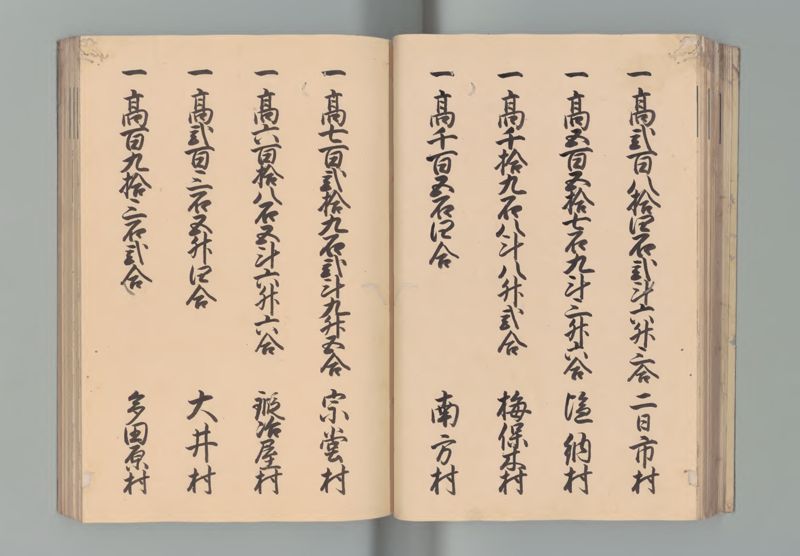 一 高弐百八拾四石弐斗六升三合 二日市村
一 高五百五拾七石九斗三升六合 塩納村
一 高千拾九石八斗八升弐合 梅保木村
一 高千百五石四合 南方村
一 高七百弐拾九石弐斗九升五合 宗堂村
一 高六百拾八石五斗六升六合 鍛冶屋村
一 高弐百三石五升四合 大井村
一 高百九拾三石弐合 多田原村